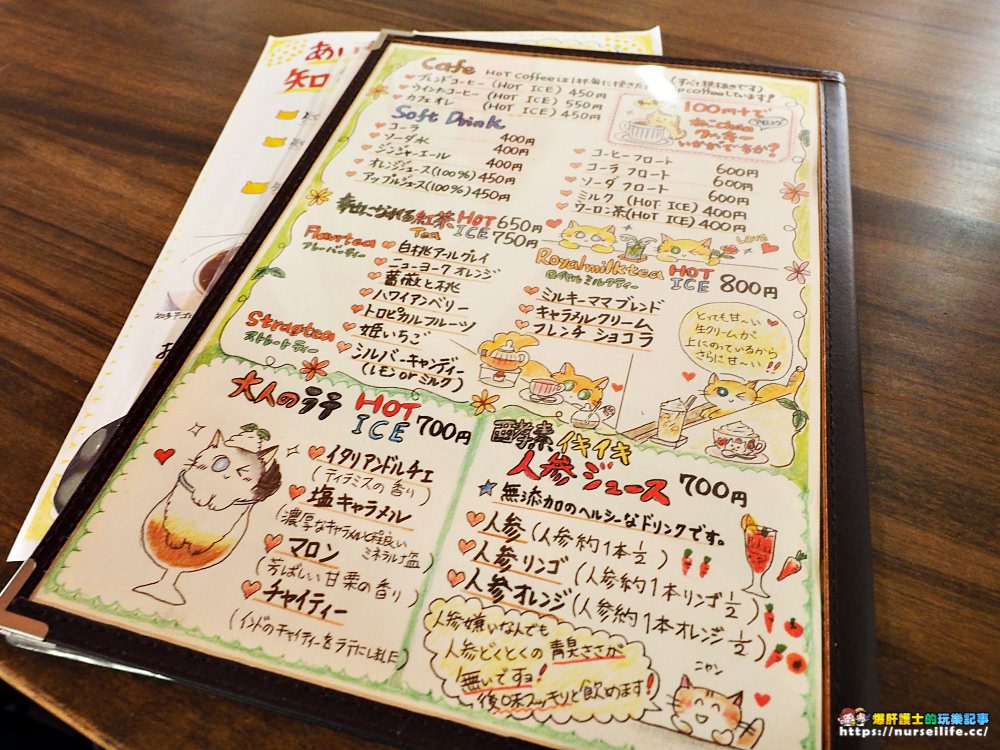 Cafe HOT Coffeeは1杯毎に挽きた
coffeeしています!
ブレンドコーヒー (HOT ICE) 450円
ウインナーコーヒー (HOT ICE) 550円
カフェオレ (HOT ICE) 450円
100円+で
ねこchan
クッキー
いかがですか?
Soft Drink
コーラ 400円
ソーダ水 400円
ジンジャーエール 400円
オレンジジュース(100%) 450円
アップルジュース(100%) 450円
コーヒーフロート 600円
コーラ フロート 600円
ソーダ フロート 600円
ミルク (HOT ICE) 400円
ウーロン茶(HOT ICE) 400円
幸せになれる紅茶 HOT 650円
Tea ICE 750円
Flavtea
フレーバーティー
白桃アールグレイ
ニューヨーク オレンジ
薔薇と桃
ハワイアンベリー
トロピカルフルーツ
姫いちご
Stragtea
ストレートティー
シルバーキャンディー
(レモン or ミルク)
Royalmilktea HOT
ロイヤルミルクティー ICE 800円
ミルキーママブレンド
キャラメルクリーム
フレンチ ショコラ
LOVE
とっても甘〜い
生クリームが
上にのっているから
さらに甘〜い!!
大人のラテ HOT
ICE 700円
イタリアンドルチェ
(ティラミスの香り)
塩キャラメル
(濃厚なキャラメルと程良い
ミネラル塩)
マロン
(芳ばしい甘栗の香り)
チャイティー
(インドのチャイティーをラテにし
酵素イキイキ
人参ジュース 700円
無添加のヘルシーなドリンクです。
人参 (人参約1本1/2)
人参リンゴ (人参約1本リンゴ1/2)
人参オレンジ (人参約1本オレンジ1/2)
人参嫌いなんでも
人参どくとくの青臭ささが
無いですョ!
後味スッキリと飲めます!
ニャン
あい
知
爆肝護士的玩樂記事
https://nurseilife.cc/